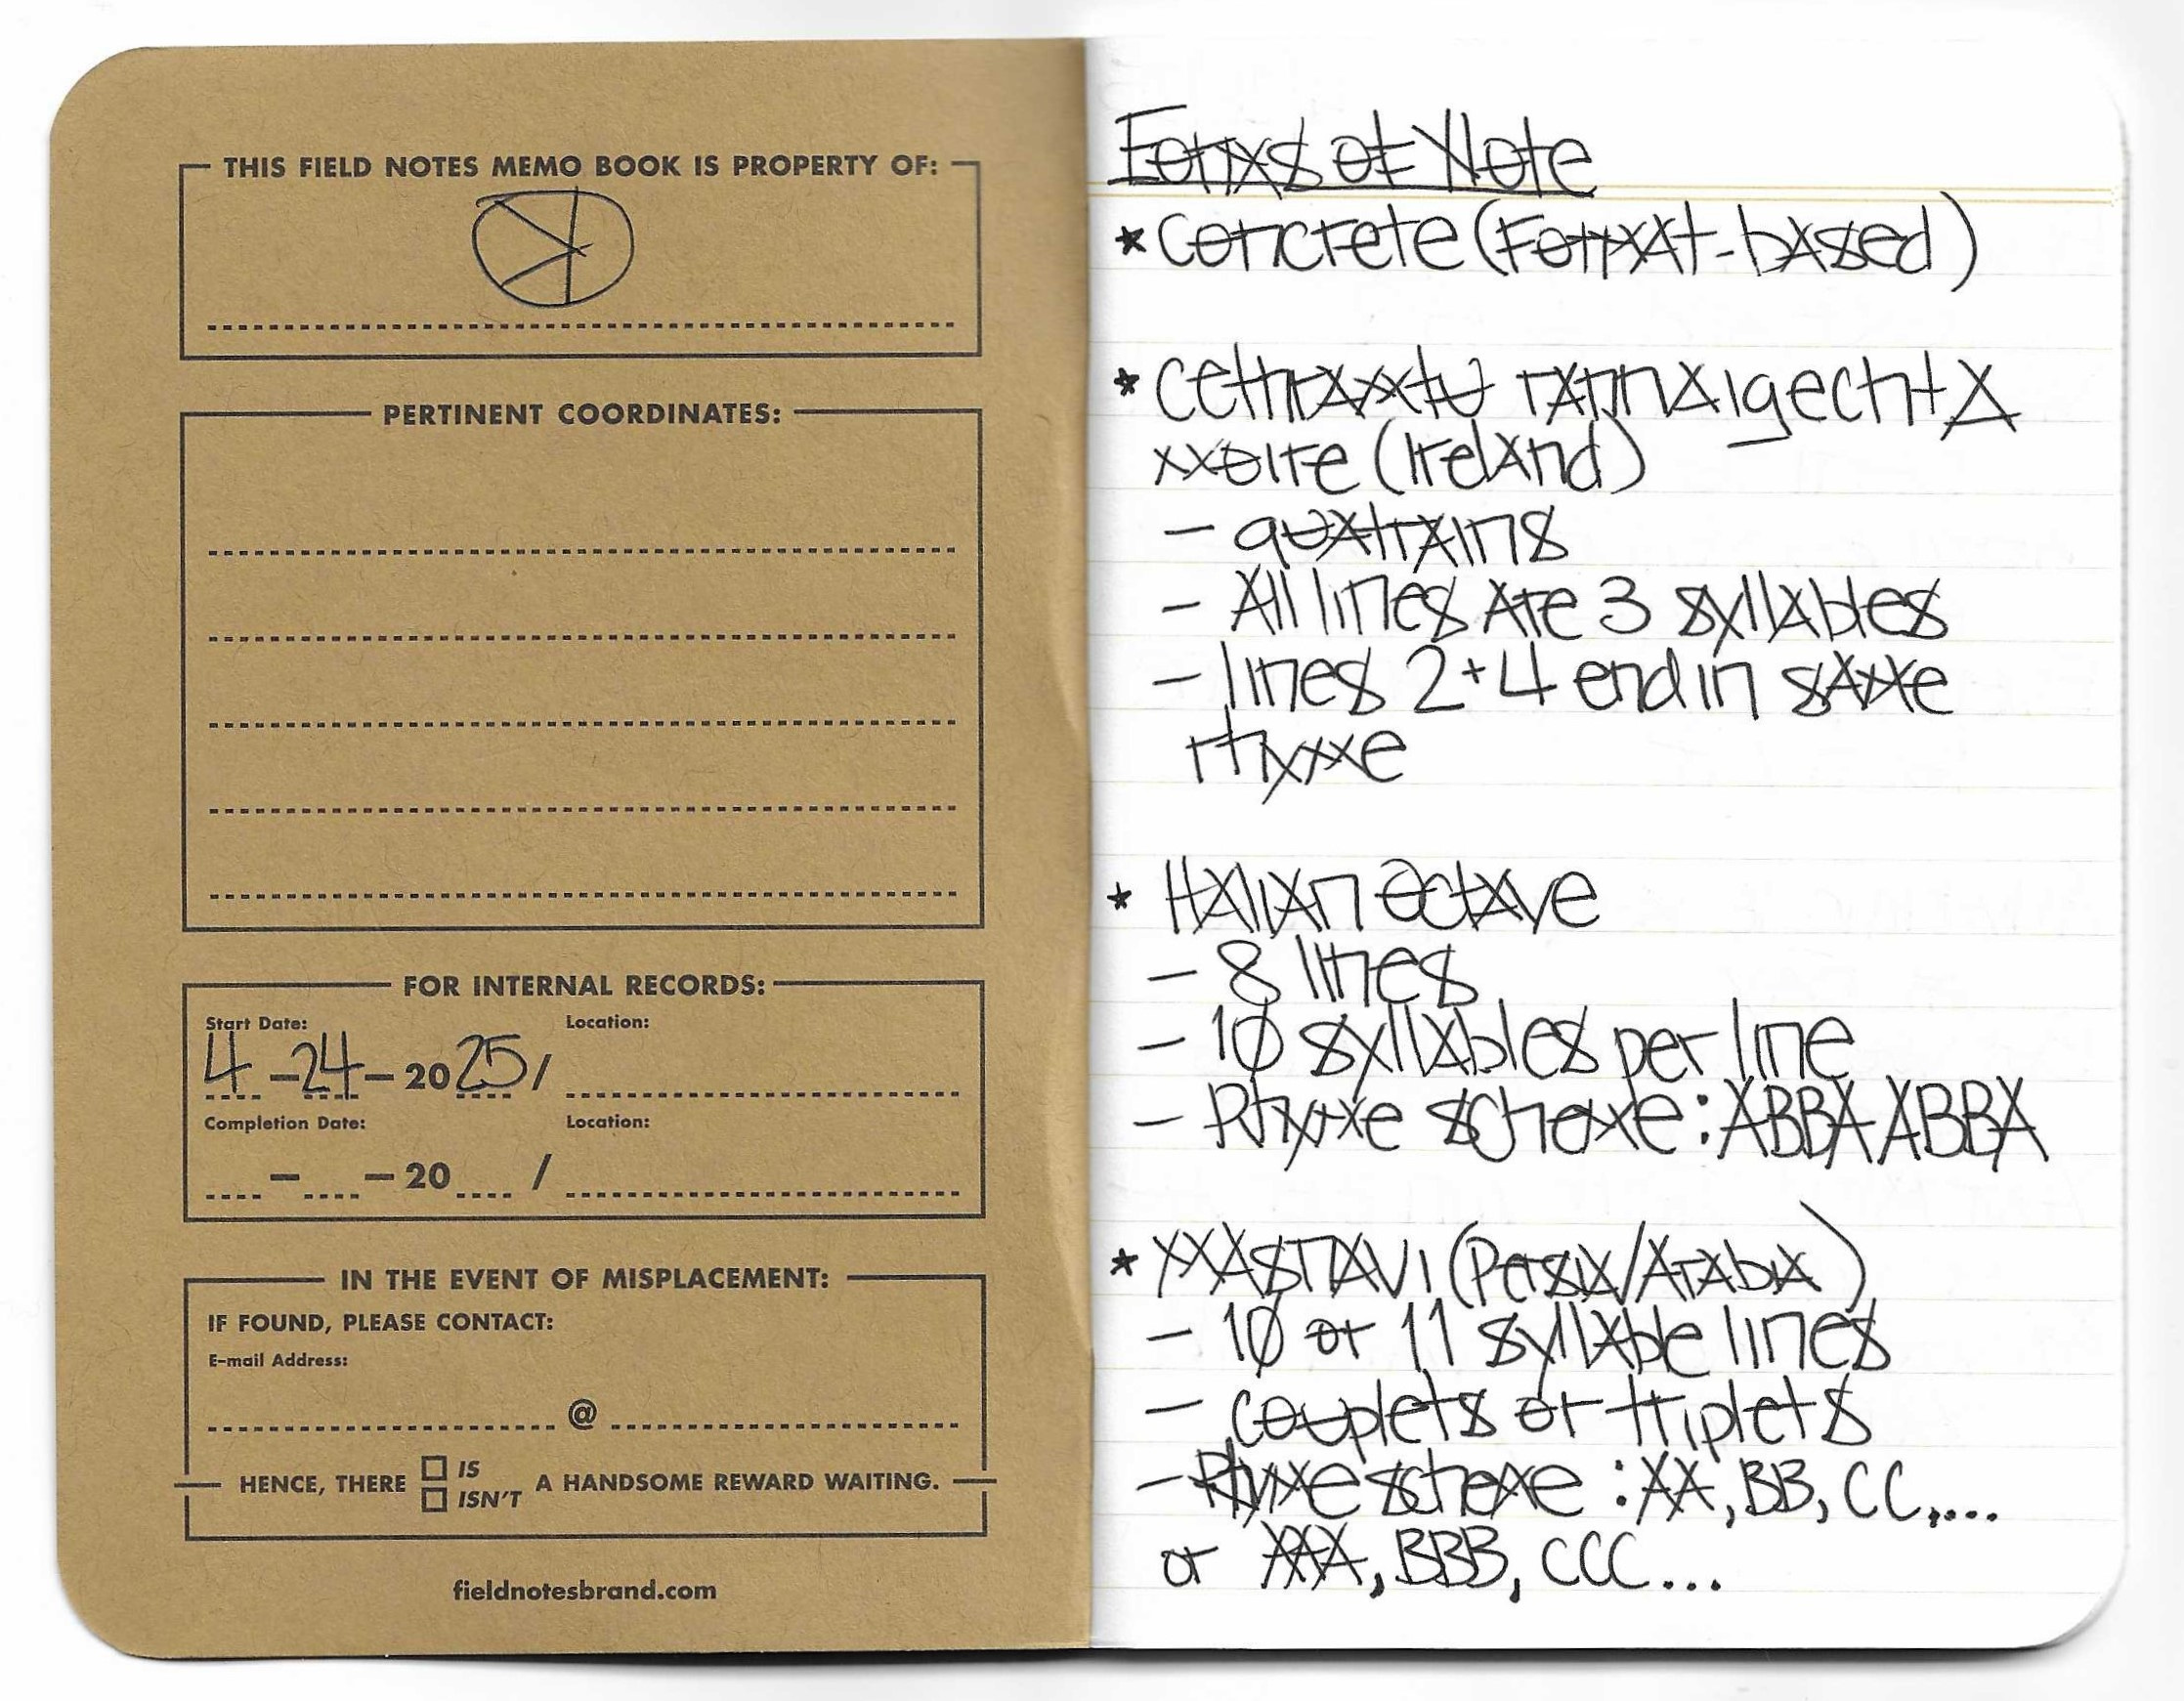 THIS FIELD NOTES MEMO BOOK IS PROPERTY OF:
PERTINENT COORDINATES:
FOR INTERNAL RECORDS:
Start Date: Location:
4-24-2025/
Completion Date: Location:
- -20 /
IN THE EVENT OF MISPLACEMENT:
IF FOUND, PLEASE CONTACT:
E-mail Address:
@
HENCE, THERE ☐ IS ☐ ISN'T A HANDSOME REWARD WAITING.
fieldnotesbrand.com
Forms of Note
* Concrete (Format-based)
* Cethramtu rannaigechta
moire (Ireland)
- quatrains
- All lines are 3 syllables
- lines 2+4 end in same
rhyme
* Italian Octave
- 8 lines
- 10 syllables per line
- Rhyme scheme: ABBA ABBA
* Masnavi (Persia/Arabia)
- 10 or 11 syllable lines
- couplets or triplets
- Rhyme scheme: AA, BB, CC,...
or AAA, BBB, CCC...